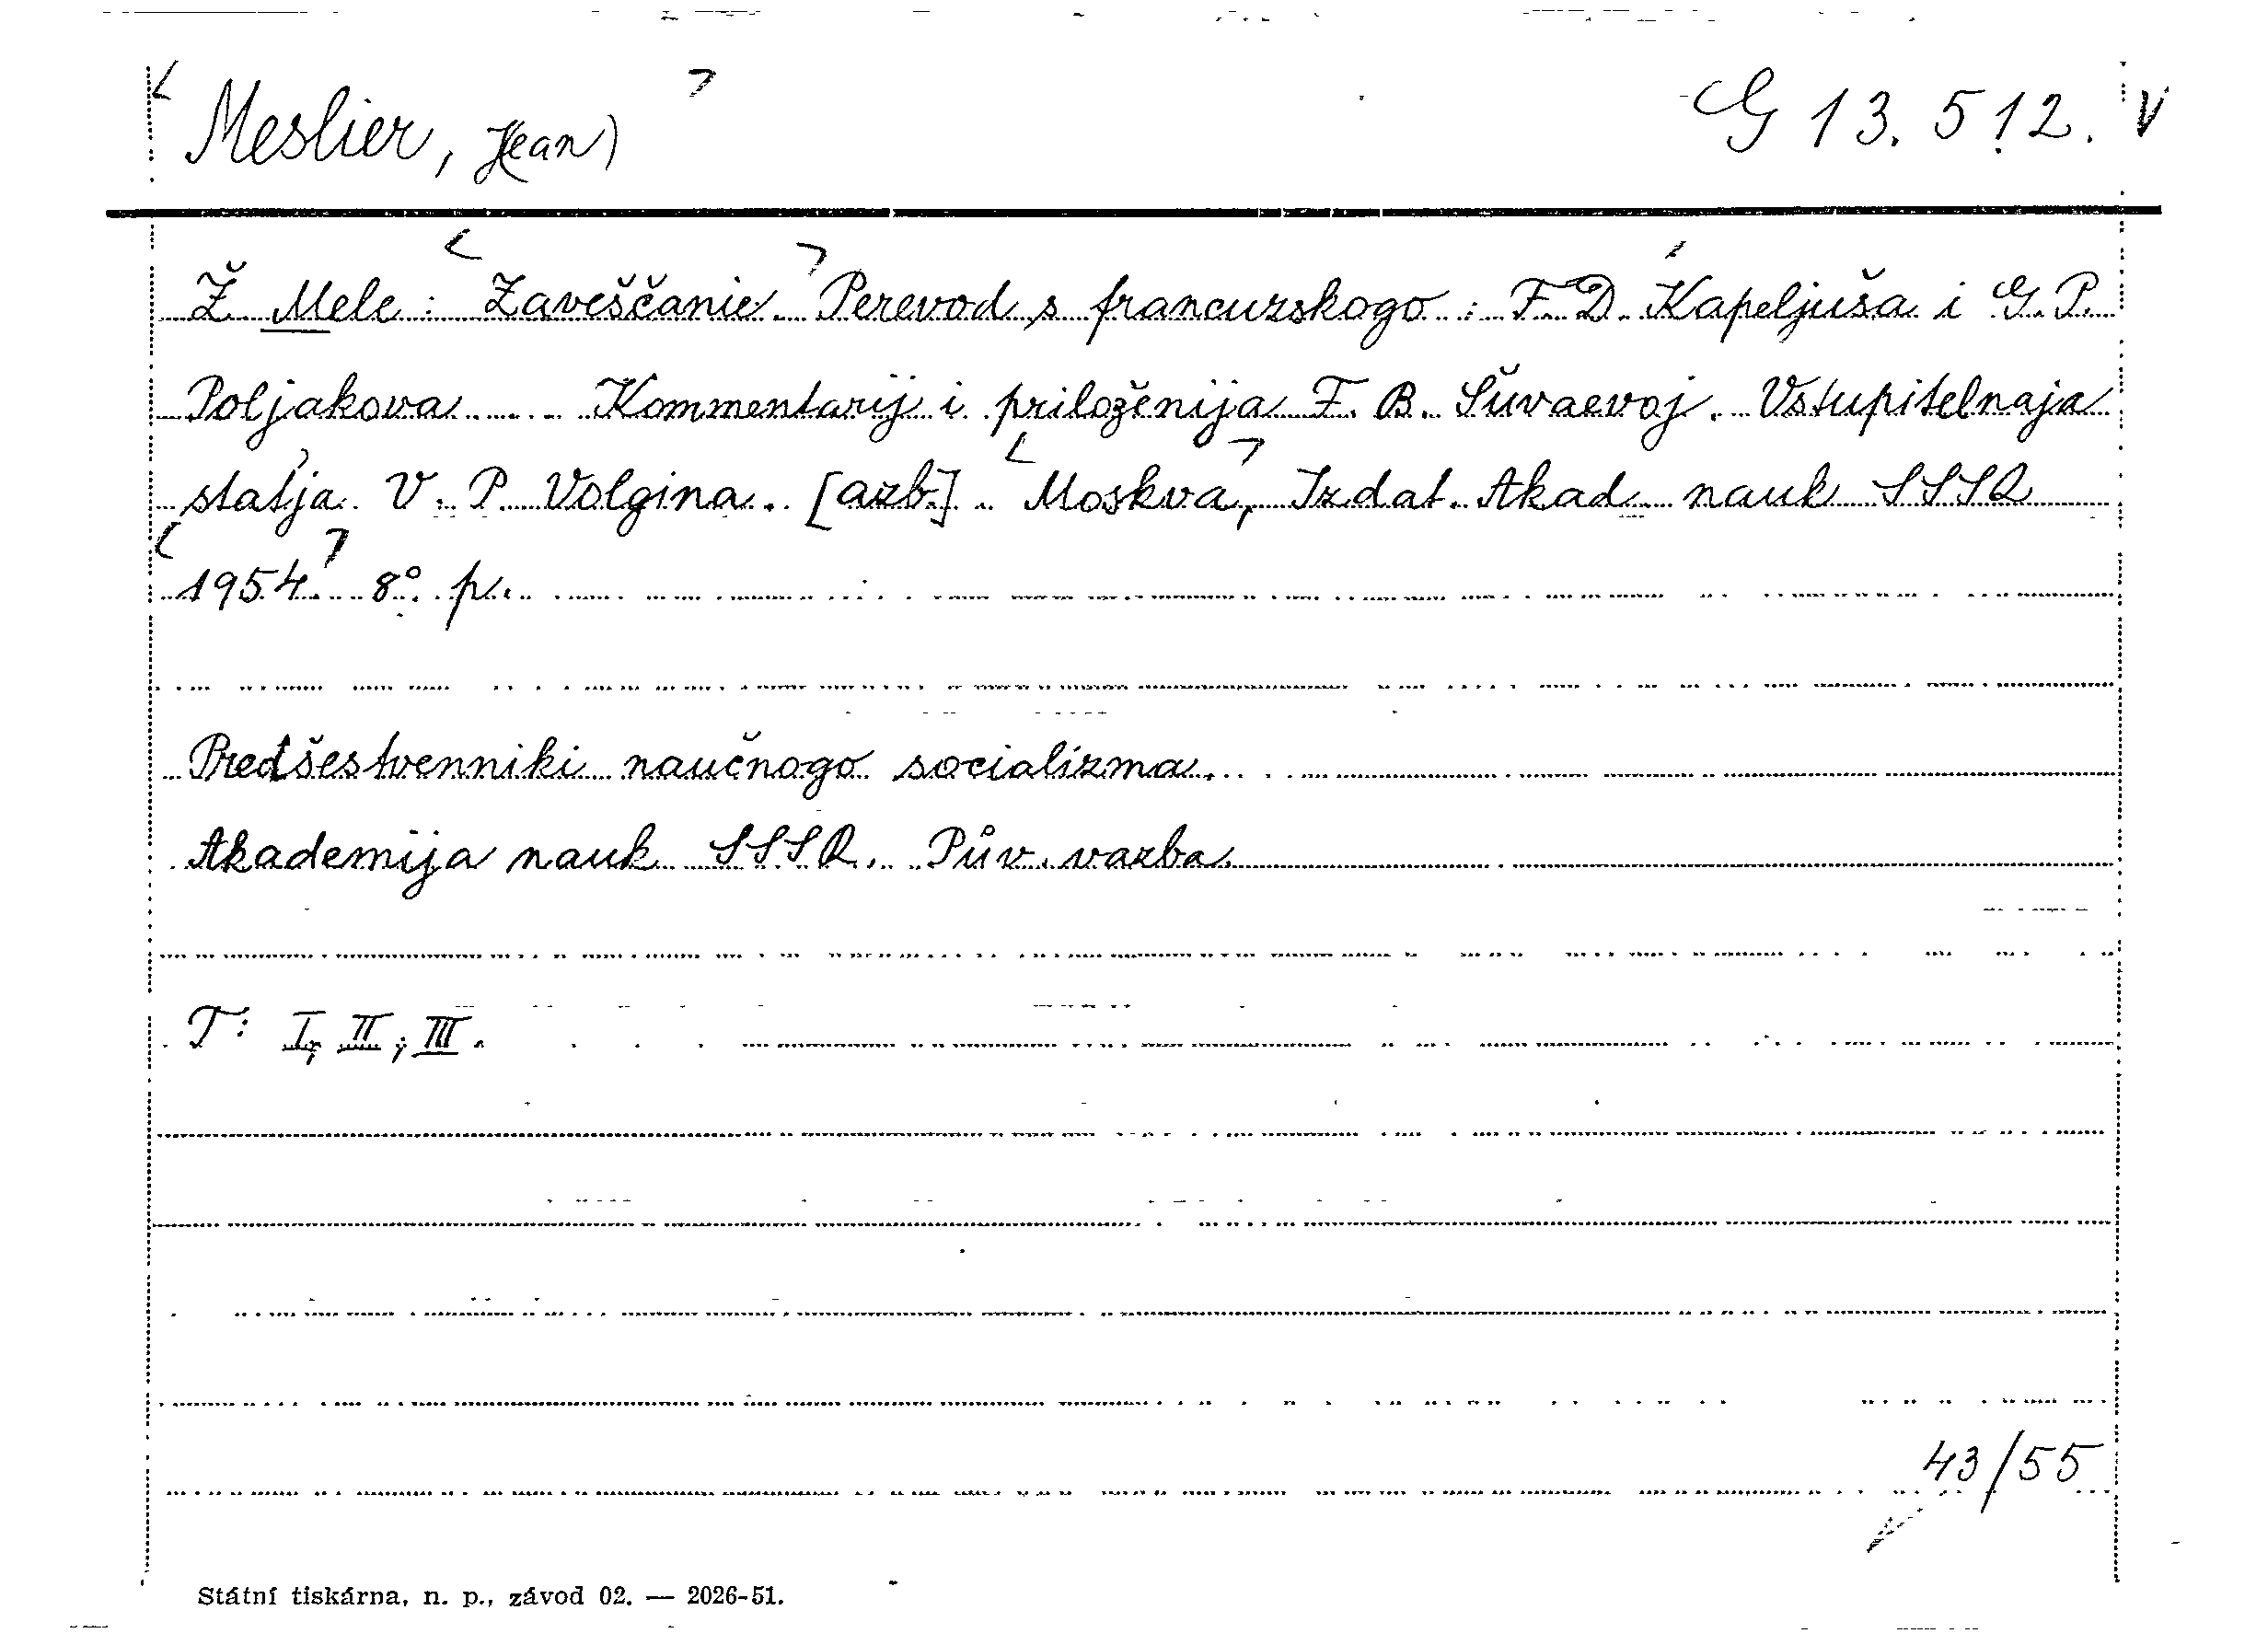 Meslier, Jean) G 13.512. V
Ž. Mele: Zaveščanie. Perevod s francuzskogo: F. D. Kapeljuša i G. P.
Poljakova ..... Kommentarij i priloženija F. B. Šuvaevoj. Vstupitelnaja
statja V. P. Volgina. [azb.]. Moskva, Izdat. Akad. nauk SSSR
1954. 8° p.
Predšestvenniki naučnogo socializma.
Akademija nauk SSSR. Pův. vazba.
T: I, II, III.
43/55
Státní tiskárna, n. p., závod 02. — 2026-51.